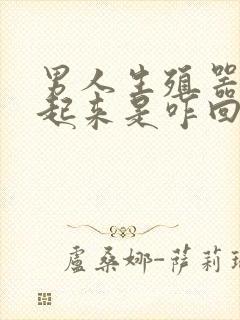 男人生殖器
起来是咋回
盧桑娜-萨莉